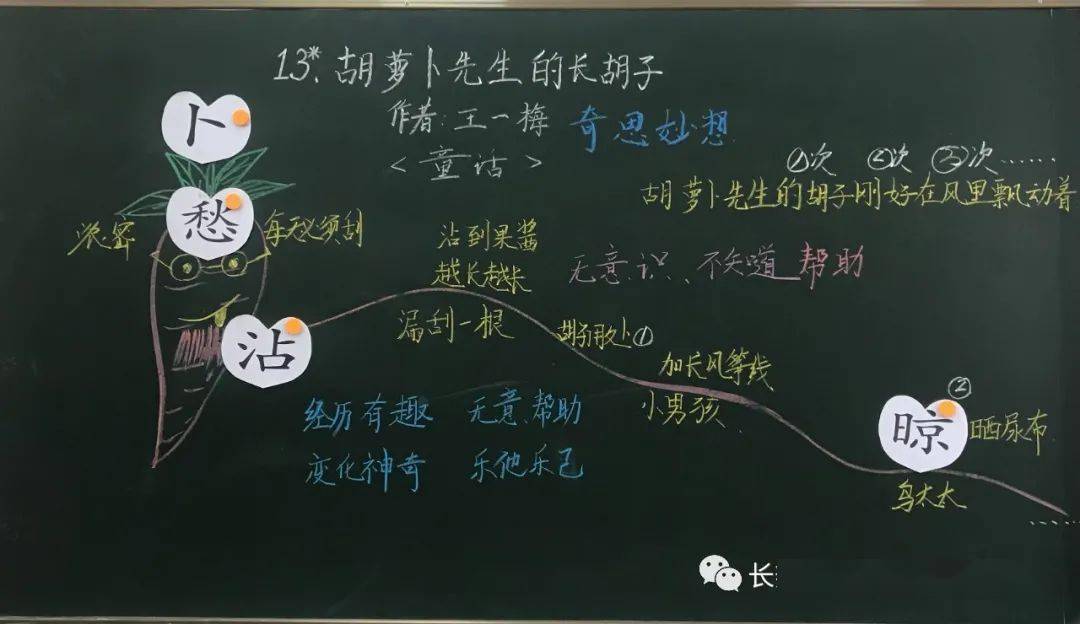 13*、胡萝卜先生的长胡子
作者:王一梅
奇思妙想
<童话>
①次 ②次 ③次……
胡萝卜先生的胡子刚好在风里飘动着
卜
愁
浓密
每天必须刮
沾到果酱
越长越长
无意识、不知道 帮助
漏刮一根
沾
胡子用处①
加长风筝线
小男孩
经历有趣 无意、帮助
变化神奇 乐他乐己
②
晾
晒尿布
鸟太太
……
长